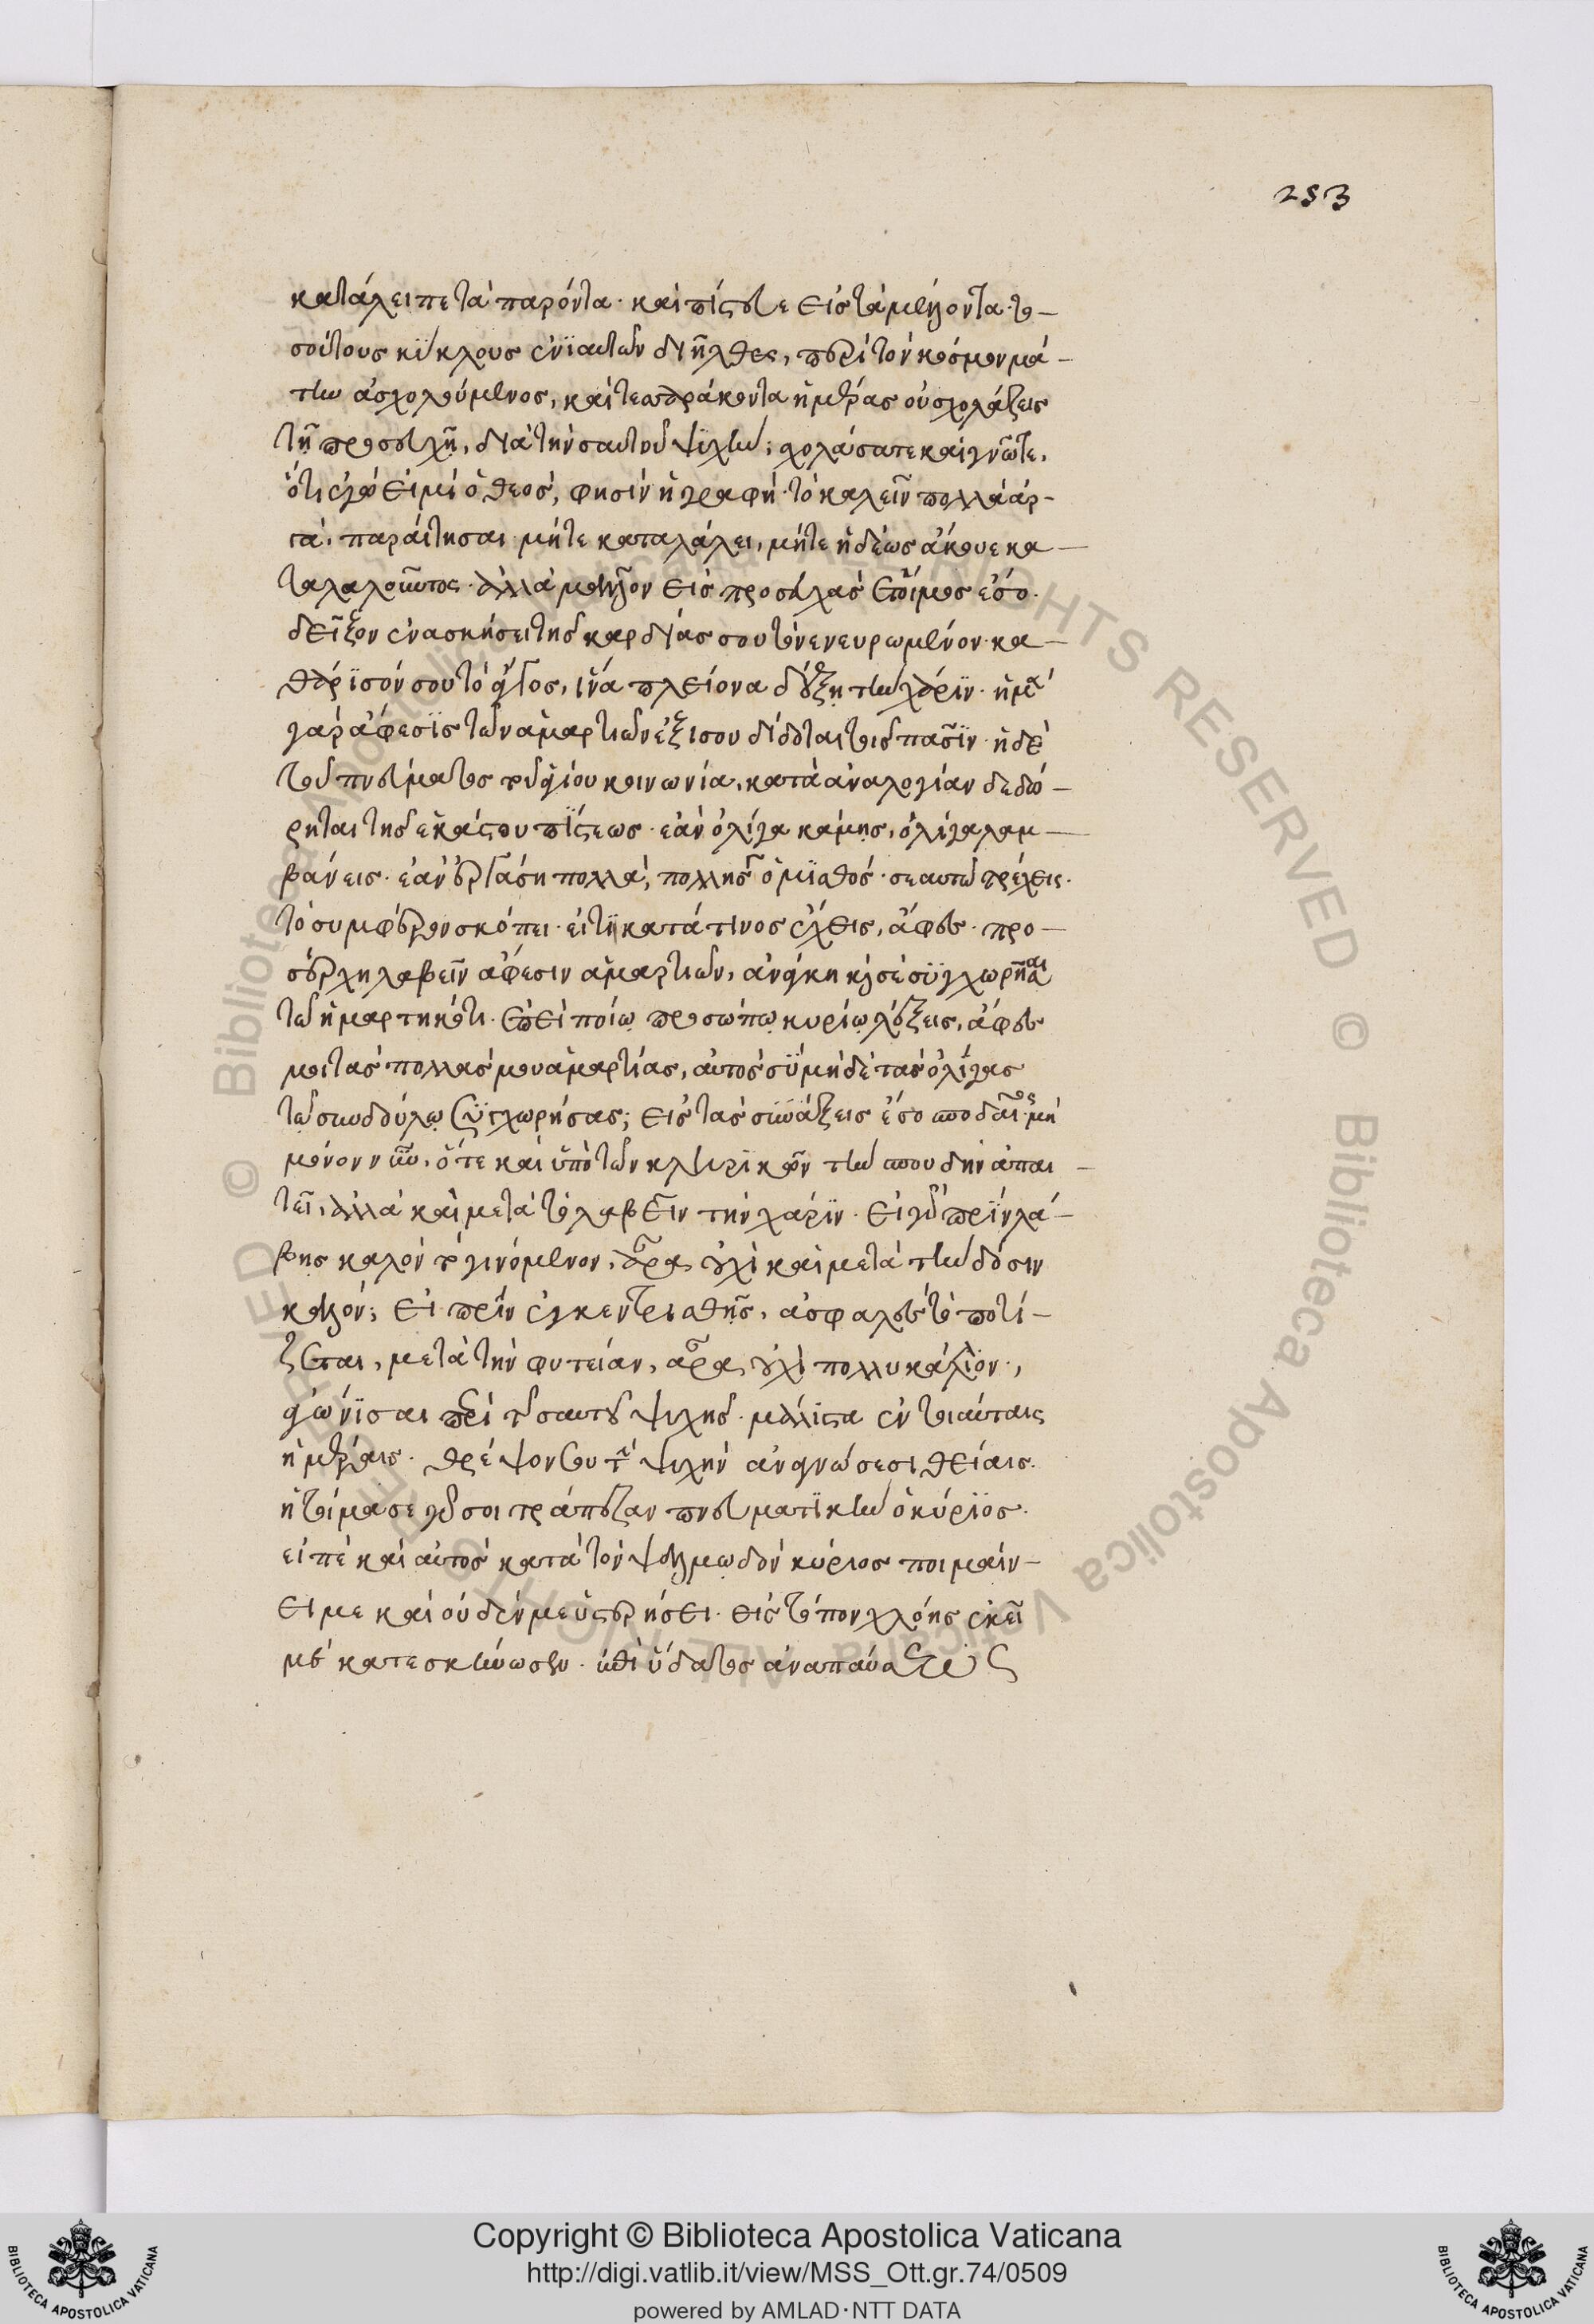 253
κατάλειπε τὰ παρόντα· καὶ πίστευε εἰς τὰ μέλλοντα· το-
σούτους κύκλους ἐνϊαυτῶν διῆλθες, περὶ τὸν κόσμον μά-
την ἀσχολούμενος, καὶ τεσσαράκοντα ἡμέρας οὐ σχολάζεις
τῇ προσευχῇ, διὰ τὴν σαυτοῦ ψϋχήν; σχολάσατε καὶ γνῶτε,
ὅτι ἐγώ εἰμι ὁ θεός, φησὶν ἡ γραφή· τὸ καλεῖν πολλὰ ἀρ-
γά, παραίτησαι· μήτε καταλάλει, μήτε ἡδέως ἄκουε κα-
ταλαλοῦντος· ἀλλὰ μᾶλλον εἰς προσευχὰς ἕτοιμος ἔσο·
δεῖξον ἐν ἀσκήσει τῆς καρδίας σου τὸν ενευρωμένον· κα-
θάρϊσόν σου τὸ ἄγγος, ἵνα πλείονα δέξῃ τὴν χάρϊν· ἡ μὲν
γὰρ ἄφεσϊς τῶν ἁμαρτιῶν ἐξίσου δίδοται τοῖς πᾶσϊν· ἡ δὲ
τοῦ πνεύματος τοῦ ἁγίου κοινωνία, κατὰ ἀναλογίαν δεδώ-
ρηται τῆς ἑκάστου πίστεως· ἐὰν ὀλίγα κάμῃς, ὀλίγα λαμ-
βάνεις· ἐὰν ἐργάσῃ πολλά, πολλής ὁ μϊσθός· σεαυτῷ τρέχεις·
τὸ συμφέρον σκόπει· εἴ τι κατά τινος ἔχεις, ἄφες· προ-
σέρχῃ λαβεῖν ἄφεσιν ἁμαρτιῶν, ἀνάγκη καὶ σὲ σϋγχωρῆσαι
τῷ ἡμαρτηκότι· ἐπεὶ ποίῳ προσώπῳ κυρίῳ λέξεις, ἄφες
μοι τὰς πολλάς μου ἁμαρτίας, αὐτὸς σὺ μηδὲ τὰς ὀλίγας
τῷ συνδούλῳ συγχωρήσας; εἰς τὰς συνάξεις ἔσο σπουδαῖος· μὴ
μόνον νῦν, ὅτε καὶ ὑπὸ τῶν κληρϊκῶν τὴν σπουδὴν ἀπαι-
τεῖ, ἀλλὰ καὶ μετὰ τὸ λαβεῖν τὴν χάρϊν· εἰ γὰρ πρὶν λά-
βῃς καλὸν τὸ γινόμενον, ἆρα οὐχὶ καὶ μετὰ τὴν δόσιν
καλόν; εἰ πρὶν ἐγκεντρισθῇς, ἀσφαλὲς τὸ ποτί-
ζεται, μετὰ τὴν φυτείαν, ἆρα οὐχὶ πολλυ κάλλϊον·,
ἀγώνϊσαι περὶ τῆς σαυτοῦ ψυχῆς· μάλιϊστα ἐν τοιαύταις
ἡμέραις· θρέψον σου τὴν ψυχὴν ἀναγνώσεσι θείαις·
ἡτοίμασε γάρ σοι τράπεζαν πνευματϊκὴν ὁ κύρϊος·
εἰπὲ καὶ αὐτὸς κατὰ τὸν ψαλμῳδὸν κύριος ποιμαίν-
ει με καὶ οὐδέν με ὑστερήσει· εἰς τόπον χλόης ἐκεῖ
με κατεσκήνωσεν· ἐπὶ ὕδατος ἀναπαύσεως